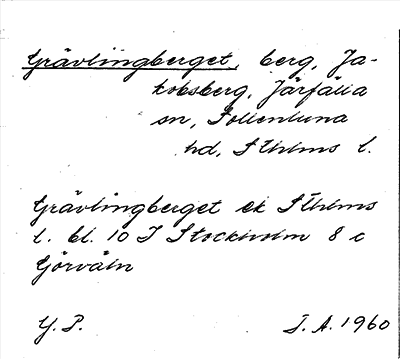 Grävlingberget, berg, Ja-
kobsberg, Järfälla
sn, Sollentuna
hd, Sthlms l.
Grävlingberget ek Sthlms
l. bl. 10 I Stockholm 8 c
Görväln
Y. P.
I. A. 1960